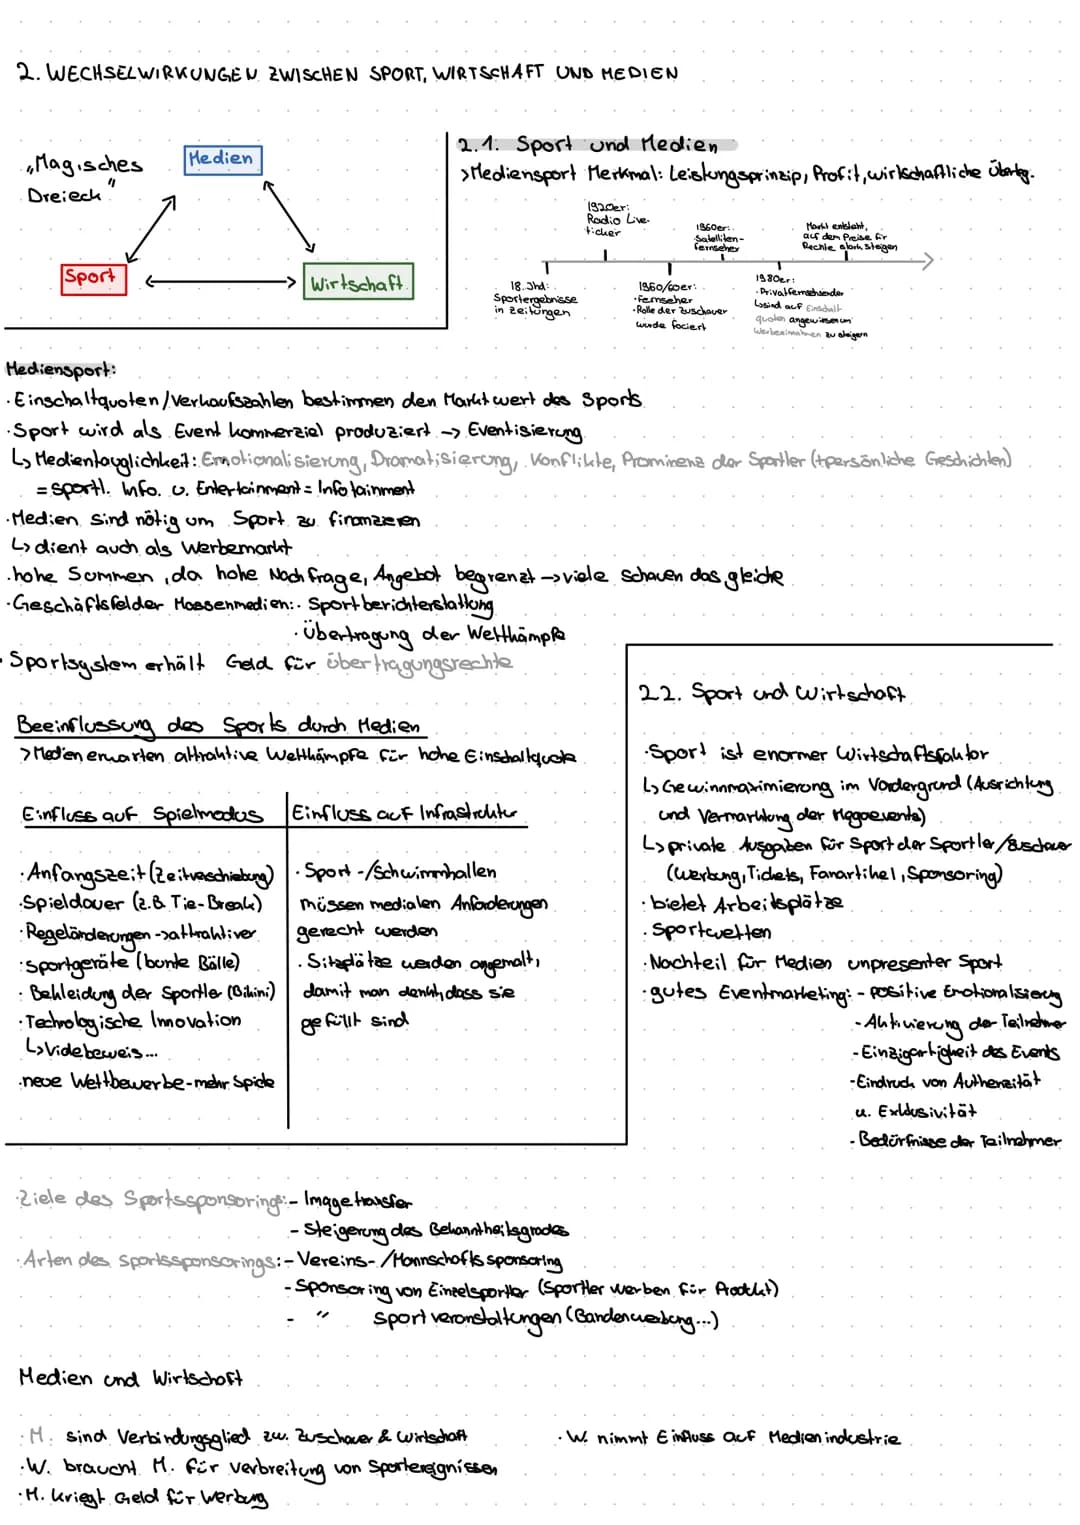 2. WECHSELWIRKUNGEN ZWISCHEN SPORT, WIRTSCHAFT UND MEDIEN
„Magisches
Dreieck"
Medien
Sport
Wirtschaft
2.1. Sport und Medien
>Mediensport Merkmal: Leistungsprinzip, Profit, wirtschaftliche Übertrg.
1920er:
Radio Live-
ticker
1960er:
Satelliten-
fernseher
Markt entsteht,
auf dem Preise für
Rechte stark steigen
18. Jhd:
Sportergebnisse
in Zeitungen
1950/60er:
·Fernseher
·Rolle der Zuschauer
wurde fociert
1980er:
·Privatfernsehsender
↳sind auf Einschalt-
quoten angewiesen um
Werbeeinnahmen zu steigern
Mediensport:
·Einschaltquoten/Verkaufszahlen bestimmen den Marktwert des Sports
·Sport wird als Event kommerziel produziert -> Eventisierung
↳ Medientauglichkeit: Emotionalisierung, Dramatisierung, Konflikte, Prominenz der Sportler (+persönliche Geschichten)
= sportl. Info. u. Entertainment = Infotainment
·Medien sind nötig um Sport zu finanzieren
↳ dient auch als Werbemarkt
·hohe Summen, da hohe Nachfrage, Angebot begrenzt -> viele schauen das gleiche
·Geschäftsfelder Massenmedien:· Sportberichterstattung
·Übertragung der Wettkämpfe
·Sportsystem erhält Geld für Übertragungsrechte
Beeinflussung des Sports durch Medien
>Medien erwarten attraktive Wettkämpfe für hohe Einschaltquote
Einfluss auf Spielmodus
·Anfangszeit (Zeitverschiebung)
·Spieldauer (z.B. Tie-Break)
·Regeländerungen ->attraktiver
·Sportgeräte (bunte Bälle)
·Bekleidung der Sportler (Bikini)
·Technologische Innovation
↳Videbeweis...
·neue Wettbewerbe-mehr Spiele
Einfluss auf Infrastruktur
·Sport-/Schwimmhallen
müssen medialen Anforderungen
gerecht werden
·Sitzplätze werden angemalt,
damit man denkt, dass sie
gefüllt sind
2.2. Sport und Wirtschaft
·Sport ist enormer Wirtschaftsfaktor
↳ Gewinnmaximierung im Vordergrund (Ausrichtung
und Vermarktung der Megaevents)
↳ private Ausgaben für Sport der Sportler/Zuschauer
(Werbung, Tickets, Fanartikel, Sponsoring)
·bietet Arbeitsplätze
·Sportwetten
·Nachteil für Medien unpresenter Sport
·gutes Eventmarketing: - positive Emotionalisierung
- Aktivierung der Teilnehmer
- Einzigartigkeit des Events
- Eindruck von Authenzität
u. Exklusivität
- Bedürfnisse der Teilnehmer
·Ziele des Sportssponsorings:- Imagetransfer
- Steigerung des Bekanntheitsgrades
·Arten des Sportssponsorings:- Vereins-/Mannschaftssponsoring
- Sponsoring von Einzelsportler (Sportler werben für Produkt)
- " Sportveranstaltungen (Bandenwerbung...)
Medien und Wirtschaft
·M. sind Verbindungsglied zw. Zuschauer & Wirtschaft
·W. braucht M. für Verbreitung von Sportereignissen
·M. kriegt Geld für Werbung
·W. nimmt Einfluss auf Medienindustrie